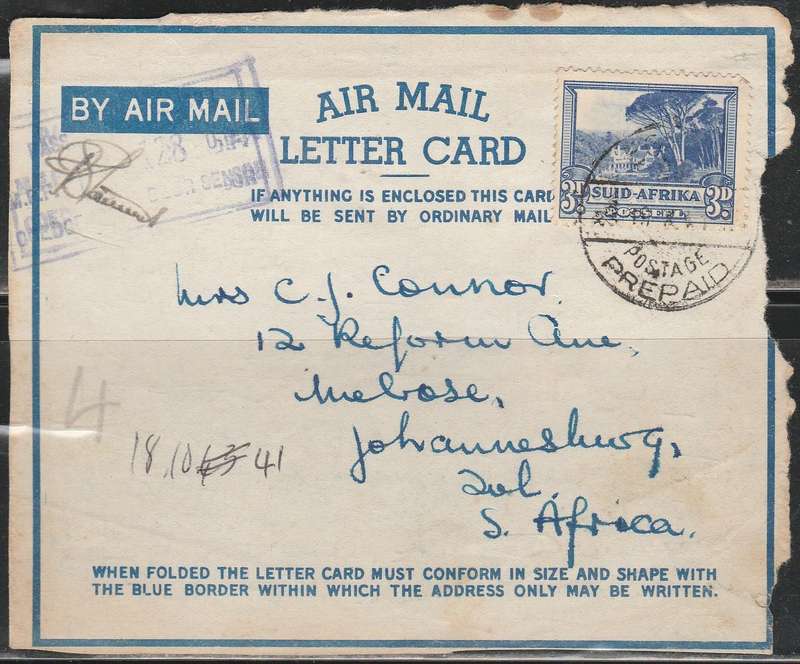 BY AIR MAIL
AIR MAIL
LETTER CARD
IF ANYTHING IS ENCLOSED THIS CARD
WILL BE SENT BY ORDINARY MAIL
3D SUID-AFRIKA 3D
POSTAGE
PREPAID
128
CENSOR
Mrs C. J. Connor.
12 Reform Ave,
Melrose,
Johannesburg,
S. Africa.
4
18.10 41
WHEN FOLDED THE LETTER CARD MUST CONFORM IN SIZE AND SHAPE WITH
THE BLUE BORDER WITHIN WHICH THE ADDRESS ONLY MAY BE WRITTEN.